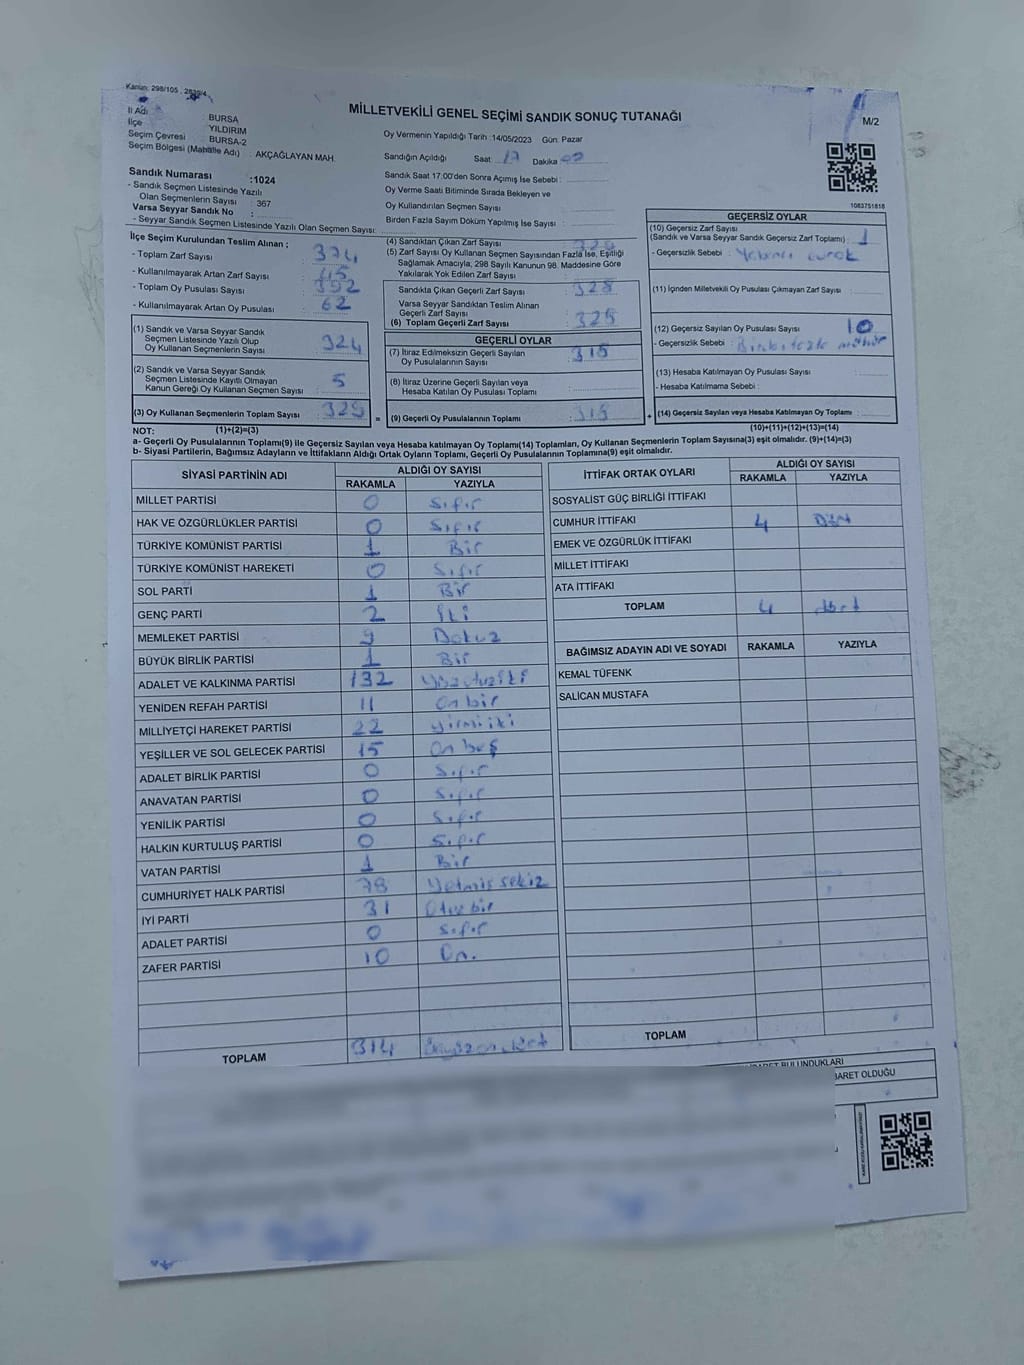 Kanun: 298/105 , 2839/4
MİLLETVEKİLİ GENEL SEÇİMİ SANDIK SONUÇ TUTANAĞI
M/2
İl Adı BURSA
İlçe YILDIRIM
Seçim Çevresi BURSA-2
Seçim Bölgesi (Mahalle Adı) : AKÇAĞLAYAN MAH.
Oy Vermenin Yapıldığı Tarih :14/05/2023 Gün: Pazar
Sandığın Açıldığı Saat 17 Dakika
Sandık Saat 17.00'den Sonra Açımış İse Sebebi :
Oy Verme Saati Bitiminde Sırada Bekleyen ve
Oy Kullandırılan Seçmen Sayısı :
Birden Fazla Sayım Döküm Yapılmış İse Sayısı :
1083751818
Sandık Numarası :1024
- Sandık Seçmen Listesinde Yazılı
Olan Seçmenlerin Sayısı : 367
Varsa Seyyar Sandık No :
- Seyyar Sandık Seçmen Listesinde Yazılı Olan Seçmen Sayısı:
İlçe Seçim Kurulundan Teslim Alınan ;
- Toplam Zarf Sayısı : 374
- Kullanılmayarak Artan Zarf Sayısı :
- Toplam Oy Pusulası Sayısı :
- Kullanılmayarak Artan Oy Pusulası : 62
(1) Sandık ve Varsa Seyyar Sandık
Seçmen Listesinde Yazılı Olup
Oy Kullanan Seçmenlerin Sayısı : 324
(2) Sandık ve Varsa Seyyar Sandık
Seçmen Listesinde Kayıtlı Olmayan
Kanun Gereği Oy Kullanan Seçmen Sayısı : 5
(3) Oy Kullanan Seçmenlerin Toplam Sayısı : 329
(4) Sandıktan Çıkan Zarf Sayısı : 329
(5) Zarf Sayısı Oy Kullanan Seçmen Sayısından Fazla İse, Eşitliği
Sağlamak Amacıyla, 298 Sayılı Kanunun 98. Maddesine Göre
Yakılarak Yok Edilen Zarf Sayısı :
Sandıkta Çıkan Geçerli Zarf Sayısı : 328
Varsa Seyyar Sandıktan Teslim Alınan
Geçerli Zarf Sayısı :
(6) Toplam Geçerli Zarf Sayısı : 328
GEÇERLİ OYLAR
(7) İtiraz Edilmeksizin Geçerli Sayılan
Oy Pusulalarının Sayısı : 318
(8) İtiraz Üzerine Geçerli Sayılan veya
Hesaba Katılan Oy Pusulası Toplamı :
= (9) Geçerli Oy Pusulalarının Toplamı : 318 +
GEÇERSİZ OYLAR
(10) Geçersiz Zarf Sayısı
(Sandık ve Varsa Seyyar Sandık Geçersiz Zarf Toplamı) : 1
- Geçersizlik Sebebi : Yabancı evrak
(11) İçinden Milletvekili Oy Pusulası Çıkmayan Zarf Sayısı :
(12) Geçersiz Sayılan Oy Pusulası Sayısı : 10
- Geçersizlik Sebebi : Birden fazla mühür
(13) Hesaba Katılmayan Oy Pusulası Sayısı :
- Hesaba Katılmama Sebebi :
(14) Geçersiz Sayılan veya Hesaba Katılmayan Oy Toplamı :
NOT: (1)+(2)=(3) (10)+(11)+(12)+(13)=(14)
a- Geçerli Oy Pusulalarının Toplamı(9) ile Geçersiz Sayılan veya Hesaba katılmayan Oy Toplamı(14) Toplamları, Oy Kullanan Seçmenlerin Toplam Sayısına(3) eşit olmalıdır. (9)+(14)=(3)
b- Siyasi Partilerin, Bağımsız Adayların ve İttifakların Aldığı Ortak Oyların Toplamı, Geçerli Oy Pusulalarının Toplamına(9) eşit olmalıdır.
SİYASİ PARTİNİN ADI ALDIĞI OY SAYISI
RAKAMLA YAZIYLA
MİLLET PARTİSİ 0 Sıfır
HAK VE ÖZGÜRLÜKLER PARTİSİ 0 Sıfır
TÜRKİYE KOMÜNİST PARTİSİ 1 Bir
TÜRKİYE KOMÜNİST HAREKETİ 0 Sıfır
SOL PARTİ 1 Bir
GENÇ PARTİ 2 İki
MEMLEKET PARTİSİ 9 Dokuz
BÜYÜK BİRLİK PARTİSİ 1 Bir
ADALET VE KALKINMA PARTİSİ 132 Yüzotuziki
YENİDEN REFAH PARTİSİ 11 Onbir
MİLLİYETÇİ HAREKET PARTİSİ 22 yirmiiki
YEŞİLLER VE SOL GELECEK PARTİSİ 15 On beş
ADALET BİRLİK PARTİSİ 0 Sıfır
ANAVATAN PARTİSİ 0 Sıfır
YENİLİK PARTİSİ 0 Sıfır
HALKIN KURTULUŞ PARTİSİ 0 Sıfır
VATAN PARTİSİ 1 Bir
CUMHURİYET HALK PARTİSİ 78 Yetmiş sekiz
İYİ PARTİ 31 Otuz bir
ADALET PARTİSİ 0 Sıfır
ZAFER PARTİSİ 10 On.
TOPLAM 314
İTTİFAK ORTAK OYLARI ALDIĞI OY SAYISI
RAKAMLA YAZIYLA
SOSYALİST GÜÇ BİRLİĞİ İTTİFAKI
CUMHUR İTTİFAKI 4 Dört
EMEK VE ÖZGÜRLÜK İTTİFAKI
MİLLET İTTİFAKI
ATA İTTİFAKI
TOPLAM 4 dört
BAĞIMSIZ ADAYIN ADI VE SOYADI RAKAMLA YAZIYLA
KEMAL TÜFENK
SALİCAN MUSTAFA
TOPLAM
BULUNDUKLARI
OLDUĞU